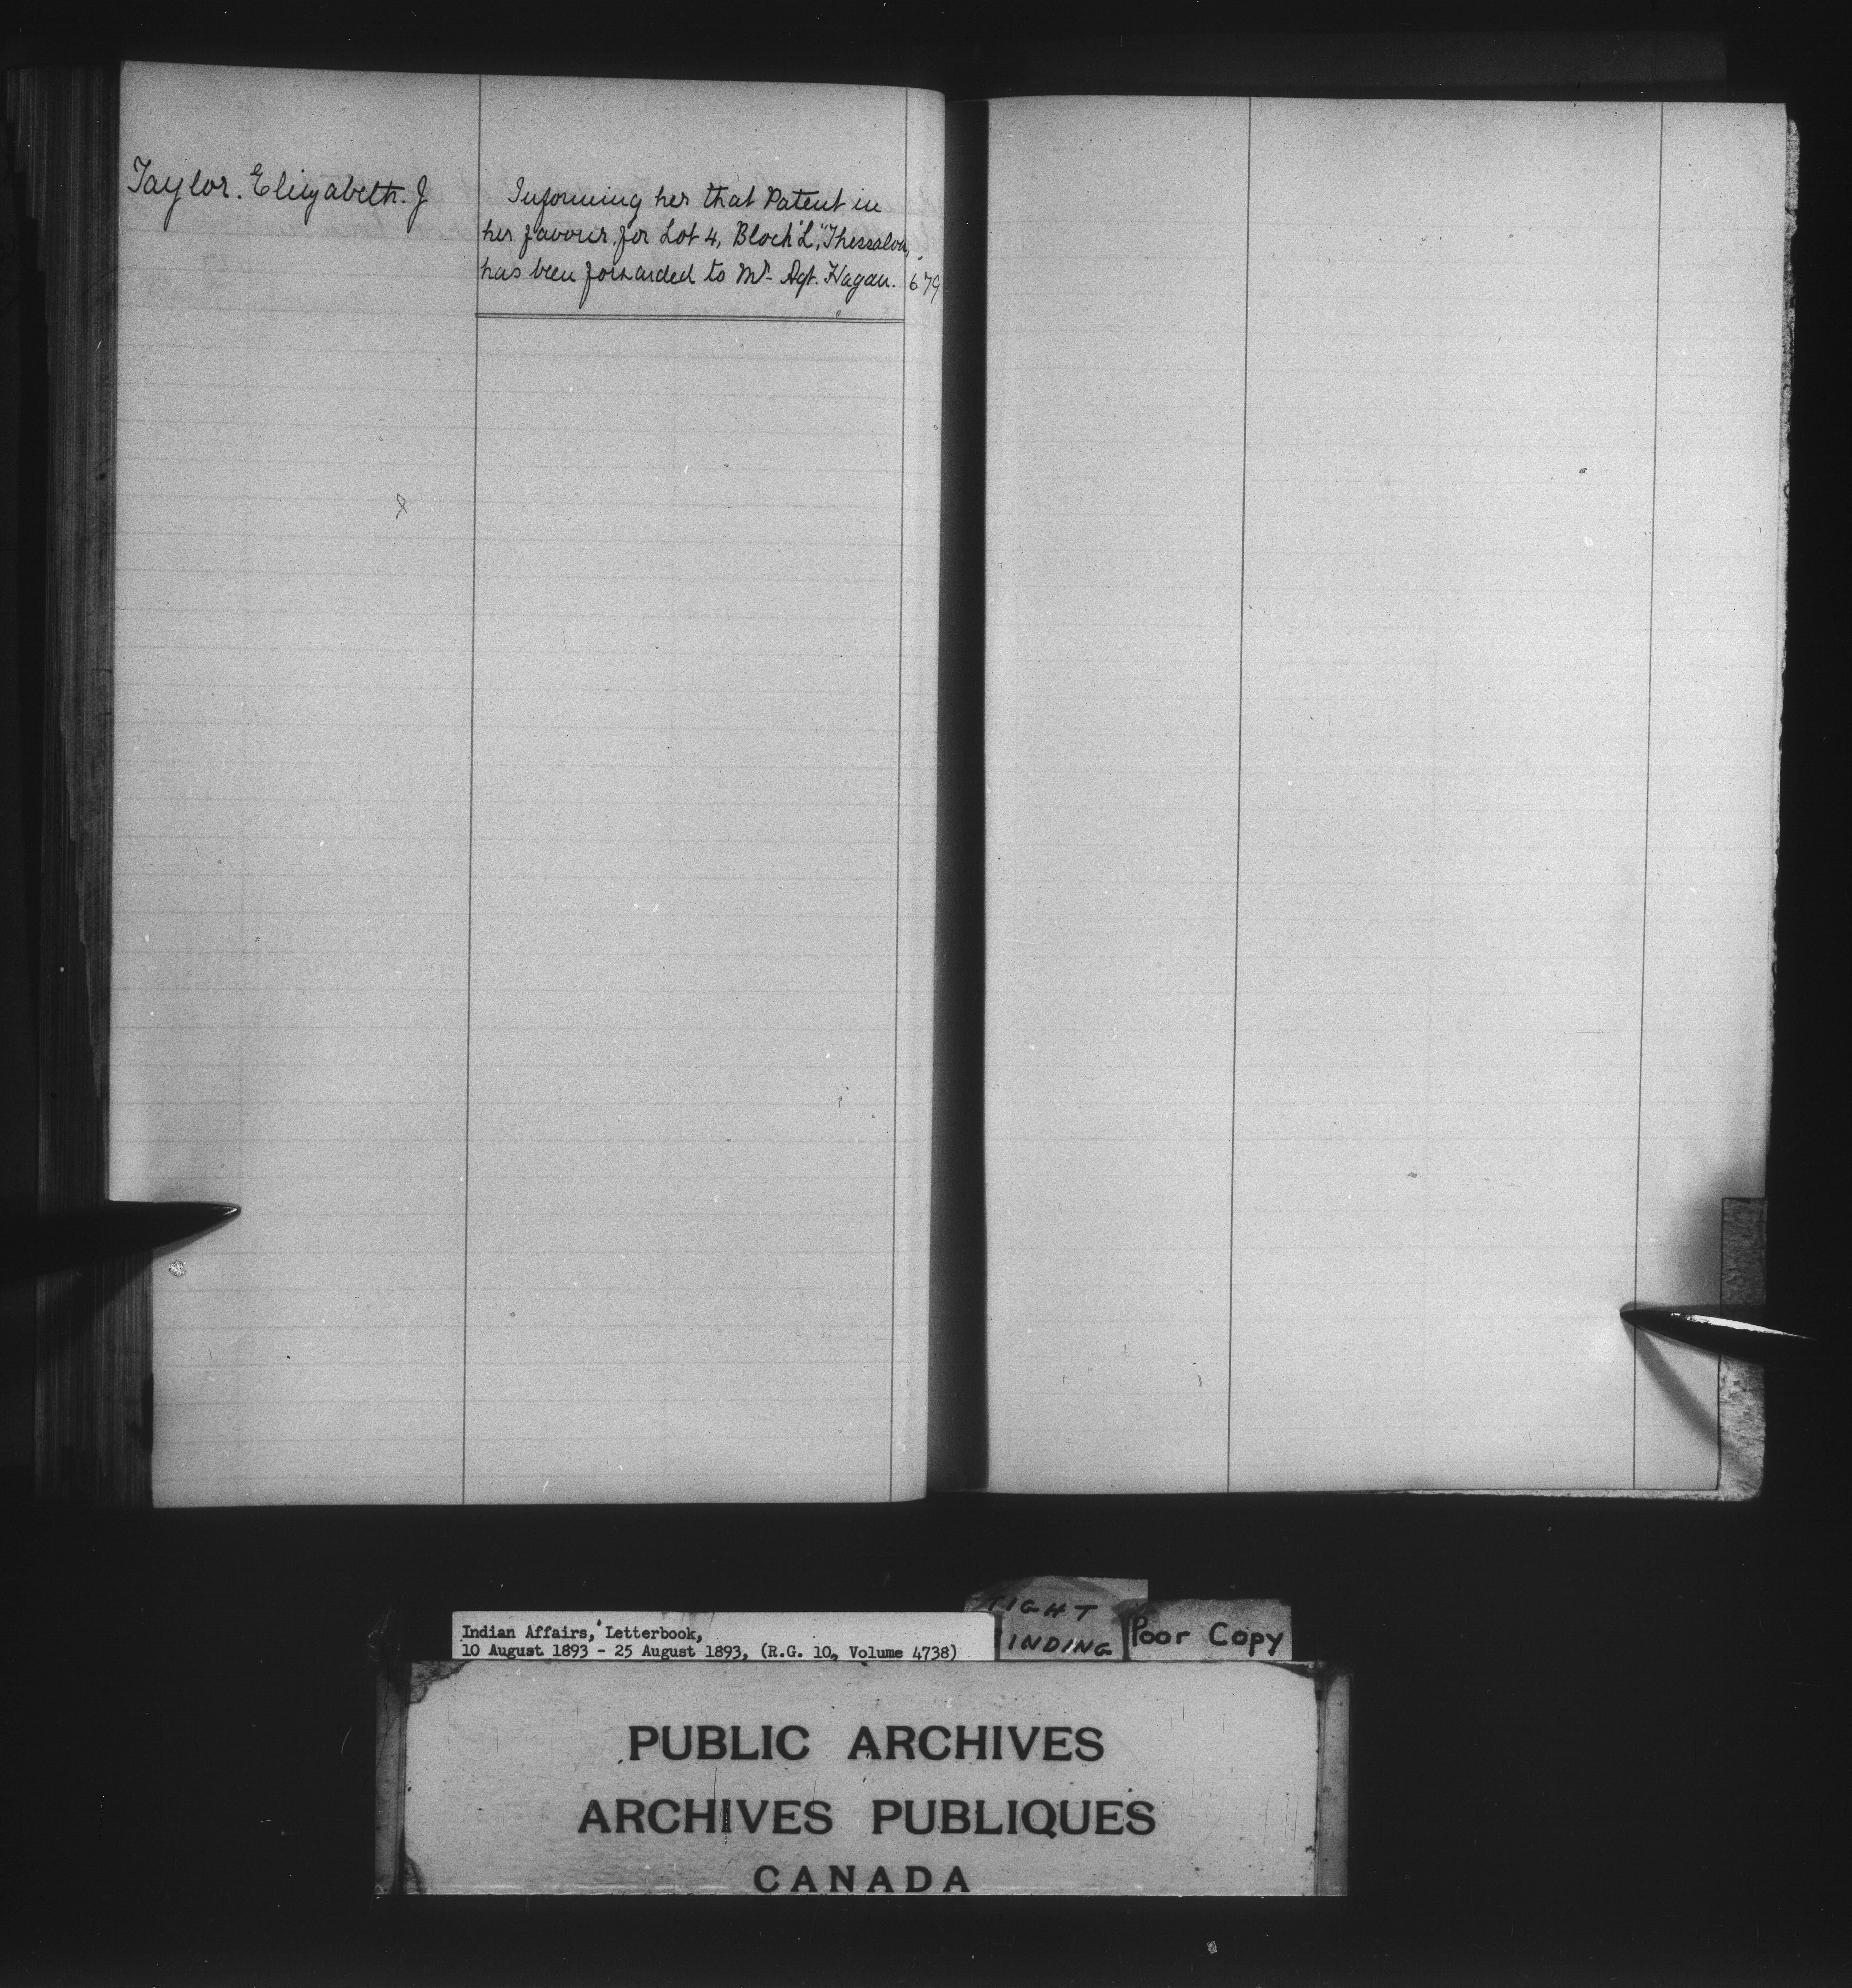 Taylor. Elizabeth. J
Informing her that Patent in
her favour, for Lot 4, Block "L," Thessalon,
has been forwarded to Mr. Agt. Hagan. 679
Indian Affairs, Letterbook,
10 August 1893 - 25 August 1893, (R.G. 10, Volume 4738)
TIGHT
BINDING
Poor Copy
PUBLIC ARCHIVES
ARCHIVES PUBLIQUES
CANADA